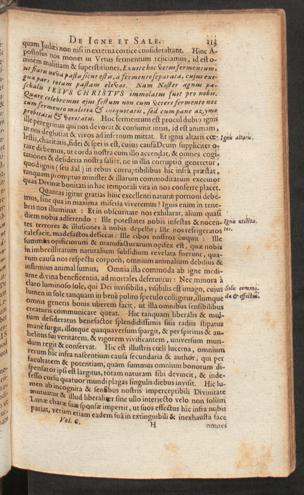 DE IGNE ET SALE. 113
quam Judæi non nisi in externa cortice consideraſtant. Hinc A-
poſtolus nos monet ut Vetus fermentum rejiciamus, id eſt o-
mnem malitiam & ſuperſtitiones. Exuite hoc Vetus fermentum,
ut ſicuti nova paſta ſicue eſtis, a fermento ſeparata, cujus exi-
gua pars totam paſtam elevat. Nam Noſter agnus pa-
ſchalis IESVS CHRISTVS immolatus fuit pro nobis.
Quare celebremus ejus feſtum non cum vetere fermento nec
cum fermento malitiæ & iniquitatis, ſed cum pane azymo
probitatis & veritatis. Hoc fermentum eſt procul dubio ignis
ille peregrinus qui nos devorat & conſumit intus, id eſt animam,
ut nos deglutiat & vivos ad infernum mittat. Et ignis altaris
Ignis altaris.
charitatis, fidei & ſpei is eſt, cuius cauſa Deum ſuppliciter o-
rare debemus, ut corda noſtra cum illo accendat, & omnes cogi-
tationes & deſideria noſtra ſaliat, ne in illis corruptio generetur,
in rebus corruptibilibus hic infra præſtat,
tanquam promptus miniſter & illarum commoditatum executor
quas Divina bonitati in hac temporali vita in nos conferre placet.
Quantas igitur gratias huic excellenti naturæ portioni debe-
mus, ſine qua in maxima miſeria viveremus? Ignis enim in tene-
bris nos illuminat: Et in obſcuritate nos exhilarat, alium quaſi
diem nobis adferendo: Ille peſtiferas nobis infeſtas & nocen-
Ignis utilita-
tes.
tes terrores & illuſiones à nobis depellit: Ille nos refrigeratos
calefacit, madefactos deſiccat: Ille cibos noſtros coquit: Ille
ſummus opificiorum & manufacturarum opifex eſt, quæ nobis
in imbecillitatis naturalium ſubſidium revelata fuerunt, qua-
rum cauſa nos reſpectu corporis omnium animalium debilius &
infirmius animal ſumus. Omnia iſta commoda ab igne medi-
ante divina beneficentia, ad mortales deferuntur: Nec minora à
claro luminoſo ſole, qui Dei inviſibilis, viſibilis eſt imago, cujus
Solis commo-
da & effectus.
lumen in ſole tanquam in benè polito ſpeculo colligitur, illumque
omnia generis bonis ubertim facit, ut illa omnibus ſenſibilibus
creaturis communicare queat. Hic tanquam liberalis & mul-
tum deſideratus benefactor ſplendidiſſimis ſuis radiis ſtipatus
mane ſurgit, illoſque quaquaverſum ſpargit, & per ſpiritus &
fervitatem, & vigorem vivificantem, univerſum mun-
dum regit & conſervat. Hic eſt illuſtris cœli lucerna, omnium
rerum hic infra naſcentium cauſa ſecundaria & author, qui per
facultatem & potentiam, quam ſummus omnium bonorum di-
ſpenſator ipſi eſt largitus, totam naturam ſibi devincit, & inde-
feſſo curſu quatuor mundi plagas ſingulis diebus inviſit. Hic lu-
men ab incognita & ſenſibus noſtris imperceptibili Divinitate
mutuatur & illud liberaliter ſine ullo interjecto velo non ſolum
Lunæ charæ ſuæ ſponſæ impertit, ut ſuos effectus hic infra nobis
pariat, verum etiam eadem ſua in extinguibili & inexhauſta face
Vol. 6. H